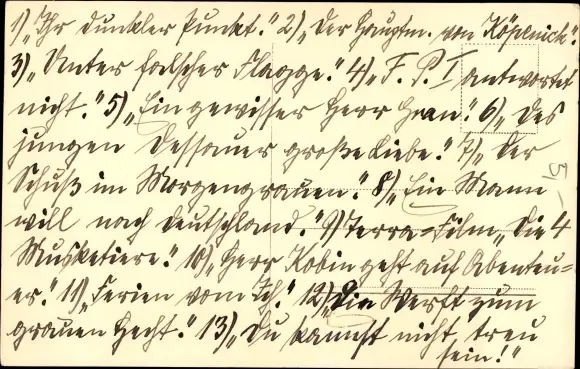 1) „Ihr dunkler Punkt." 2) „Der Hauptm. von Köpenick".
3) „Unter falscher Flagge." 4) „F. P. I antwortet
nicht." 5) „Ein gewisser Herr Gran." 6) „Des
jungen Dessauer große Liebe." 7) „Der
Schuß im Morgengrauen." 8) „Ein Mann
will nach Deutschland." 9) Terra-Film „Die 4
Musketiere." 10) „Herr Kobin geht auf Abenteu-
er." 11) „Ferien vom Ich." 12) „Die Werft zum
grauen Hecht." 13) „Du kannst nicht treu
sein!"